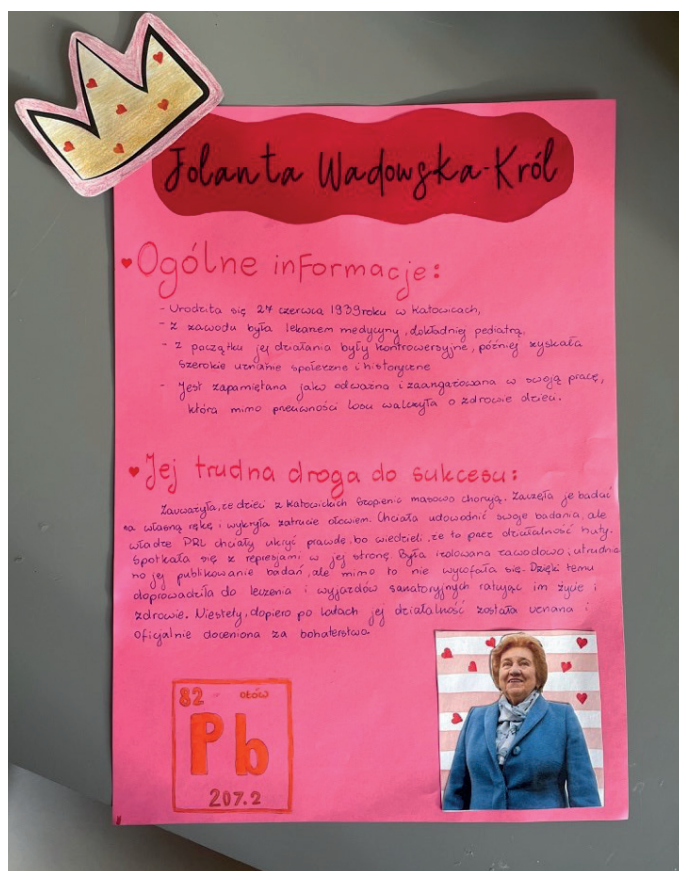 Jolanta Wadowska-Król
Ogólne informacje:
- Urodziła się 27 czerwca 1939roku w Katowicach,
- Z zawodu była lekarzem medycyny, dokładniej pediatrą,
- Z początku jej działania były kontrowersyjne, później zyskała
szerokie uznanie społeczne i historyczne
- Jest zapamiętana jako odważna i zaangażowana w swoją pracę,
która mimo przeciwności losu walczyła o zdrowie dzieci.
Jej trudna droga do sukcesu:
Zauważyła, że dzieci z katowickich Szopienic masowo chorują. Zaczęła je badać
na własną rękę i wykryła zatrucie ołowiem. Chciała udowodnić swoje badania, ale
władze PRL chciały ukryć prawdę, bo wiedzieli, że to przez działalność huty.
Spotkała się z represjami w jej stronę. Była izolowana zawodowo i utrudnio
no jej publikowanie badań, ale mimo to nie wycofała się. Dzięki temu
doprowadziła do leczenia i wyjazdów sanatoryjnych ratując im życie i
zdrowie. Niestety, dopiero po latach jej działalność została uznana i
oficjalnie doceniona za bohaterstwo.
82 ołów
Pb
207.2